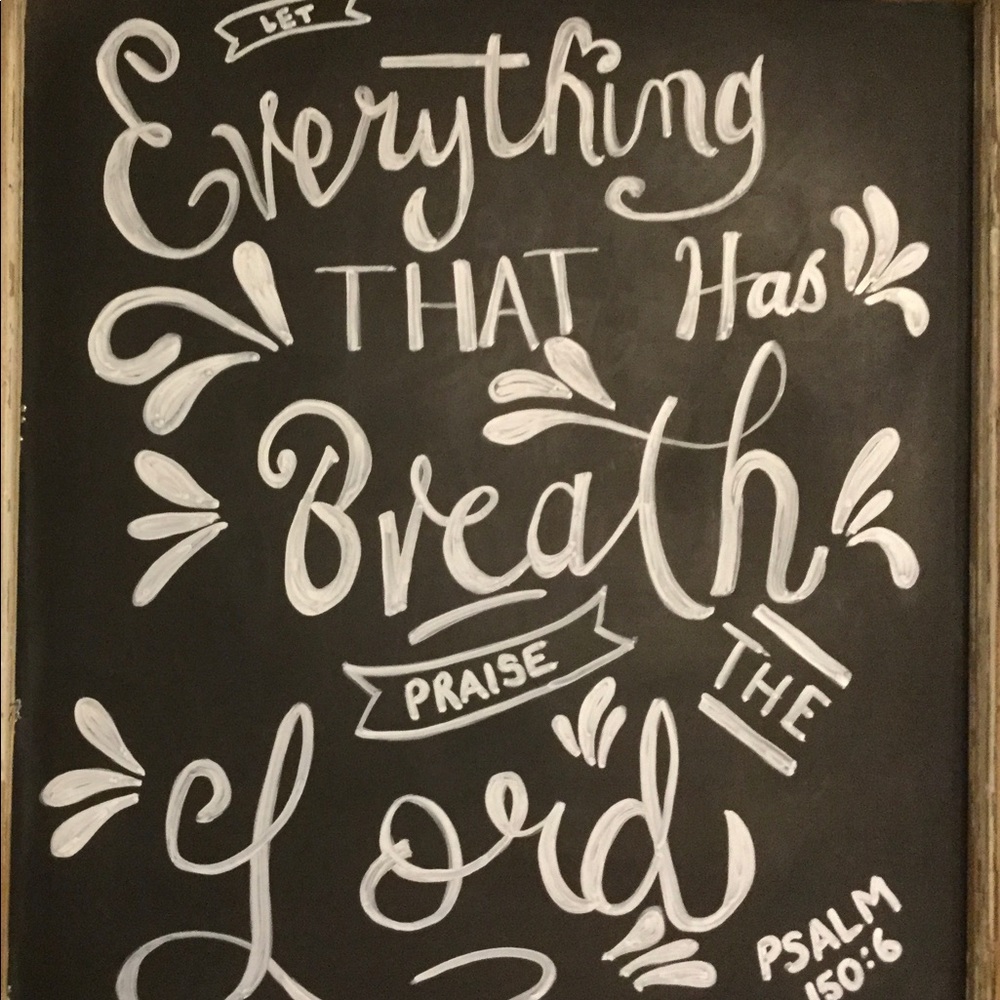 LET
Everything
THAT Has
Breath
PRAISE THE
Lord
PSALM
150:6